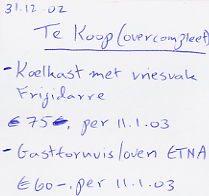 31.12-02
Te Koop (overcompleet)
- Koelkast met vriesvak
Frigidarre
€ 75€, per 11.1.03
- Gasfornuis/oven ETNA
€ 60-, per 11.1.03